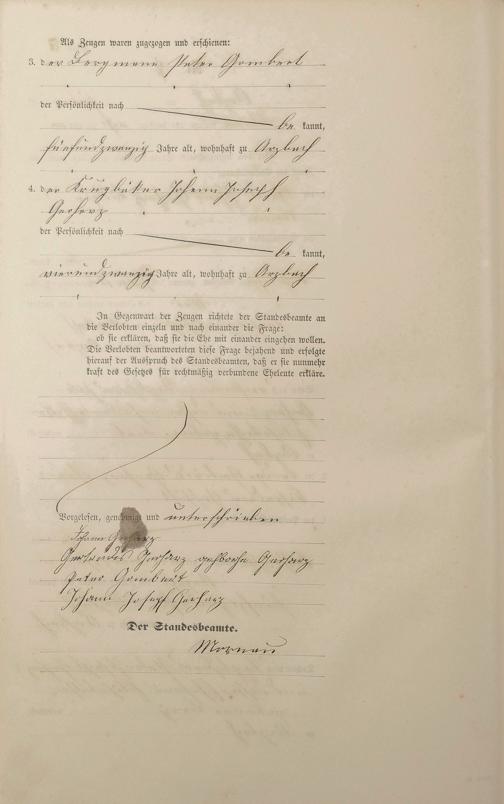 Als Zeugen waren zugezogen und erschienen:
3. der Bergmann Peter Gombert
der Persönlichkeit nach
be kannt,
fünfundzwanzig Jahre alt, wohnhaft zu Arzbach
4. der Krugbäker Johann Joseph
Gerharz
der Persönlichkeit nach
be kannt,
vierundzwanzig Jahre alt, wohnhaft zu Arzbach
In Gegenwart der Zeugen richtete der Standesbeamte an
die Verlobten einzeln und nach einander die Frage:
ob sie erklären, daß sie die Ehe mit einander eingehen wollen.
Die Verlobten beantworteten diese Frage bejahend und erfolgte
hierauf der Ausspruch des Standesbeamten, daß er sie nunmehr
kraft des Gesetzes für rechtmäßig verbundene Eheleute erkläre.
Vorgelesen, genehmigt und unterschrieben
Johann Gerharz
Gerharz Gerharz
Peter Gombert
Johann Josepf Gerharz
Der Standesbeamte.